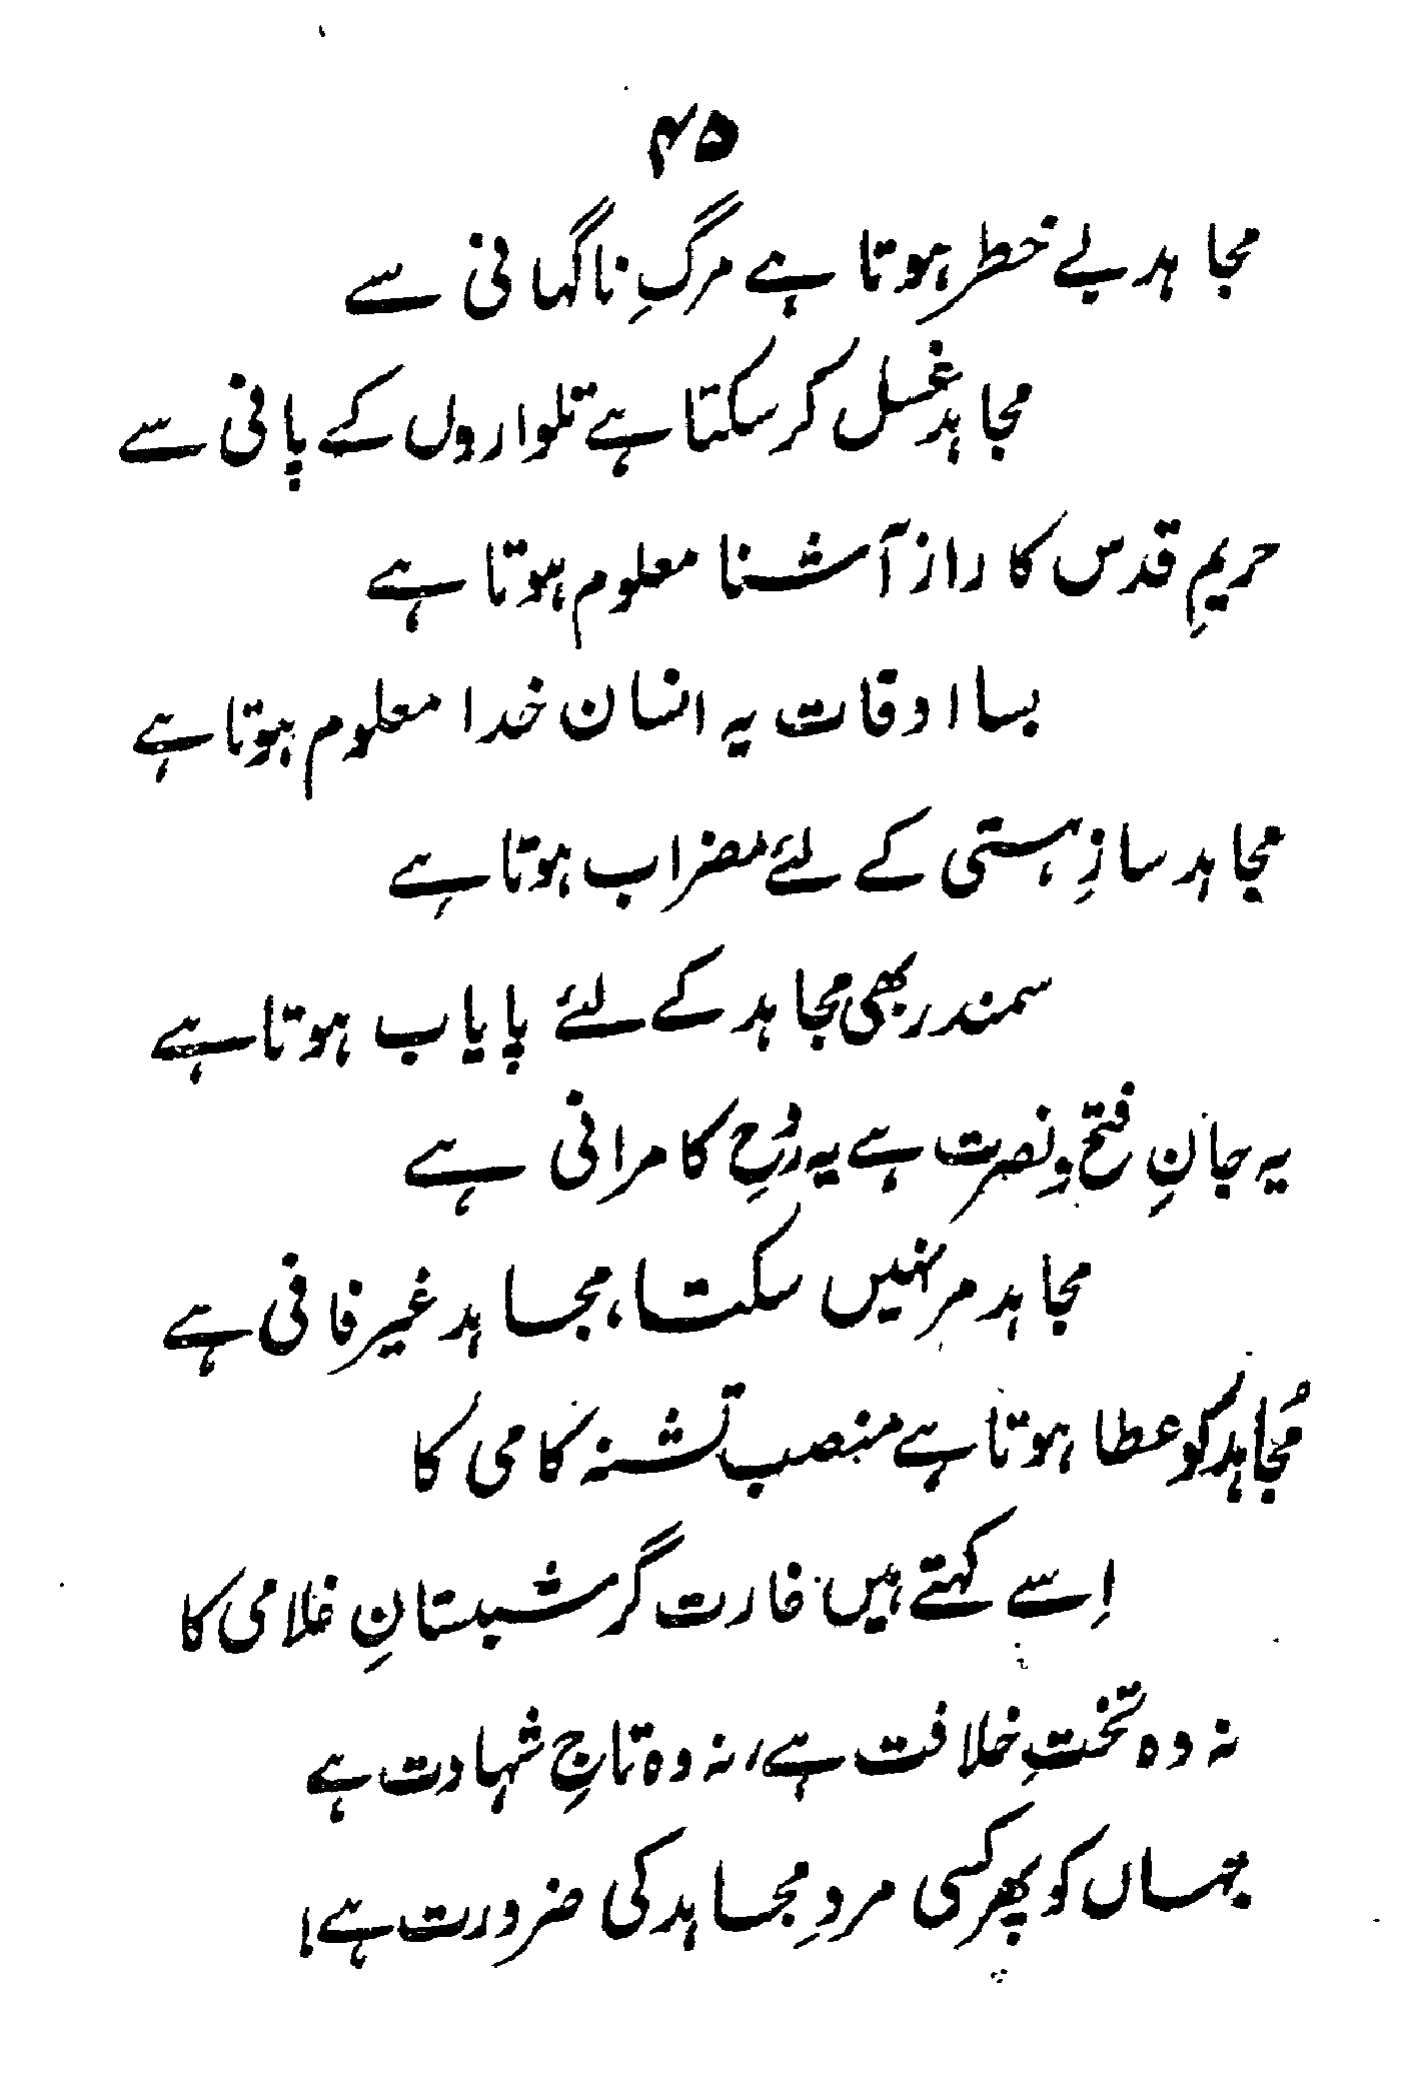 ۴۵
مجاہد بے خطر ہوتا ہے مرگِ ناگہانی سے
مجاہد غسل کر سکتا ہے تلواروں کے پانی سے
حریمِ قدس کا راز آشنا معلوم ہوتا ہے
بسا اوقات یہ انسان خدا معلوم ہوتا ہے
مجاہد سازِ ہستی کے لئے مضراب ہوتا ہے
سمندر بھی مجاہد کے لئے پایاب ہوتا ہے
یہ جانِ فتح و نصرت ہے یہ رُوحِ کامرانی ہے
مجاہد مر نہیں سکتا، مجاہد غیر فانی ہے
مُجاہد کو عطا ہوتا ہے منصب تشنہ کامی کا
اِسے کہتے ہیں غارت گر شبستانِ غلامی کا
نہ وہ تختِ خلافت ہے، نہ وہ تاجِ شہادت ہے
جہاں کو پھر کسی مردِ مجاہد کی ضرورت ہے!